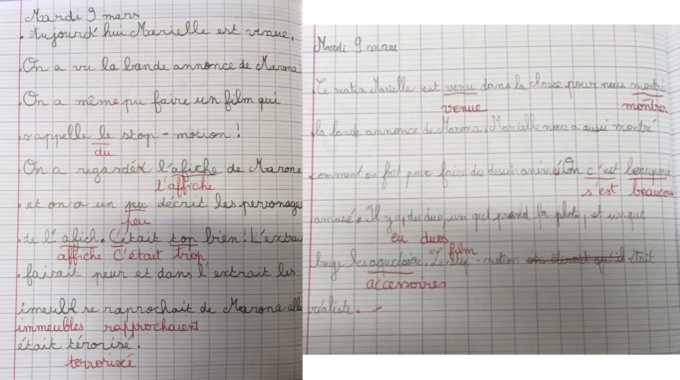 Mardi 9 mars
Aujourd'hui Marielle est venue.
On a vu la bande annonce de Marona
On a même pu faire un film qui
rappelle le stop-motion !
du
On a regardér l'afiche de Marona
l'affiche
et on a un pu décrit les personages
peu
de l'afich. C'était trop bien ! L'extrai
affiche C'était trop
faisait peur et dans l'extrait les
imeubl se raprochait de Marona elle
immeubles rapprochaient
était térorisé.
terrorisé
Mardi 9 mars
Ce matin Marielle est venu dans la classe pour nous montré
venue montrer
la bande annonce de Marona. Marielle nous a aussi montré
comment on fait pour faire du dessin animé. On c'est beaucoup
s'est beaucoup
amusé. Il y a du duo, un qui prend la photo, et un qui
eu duos
bouge les . Le stop-motion était
film
accessoires
réaliste.